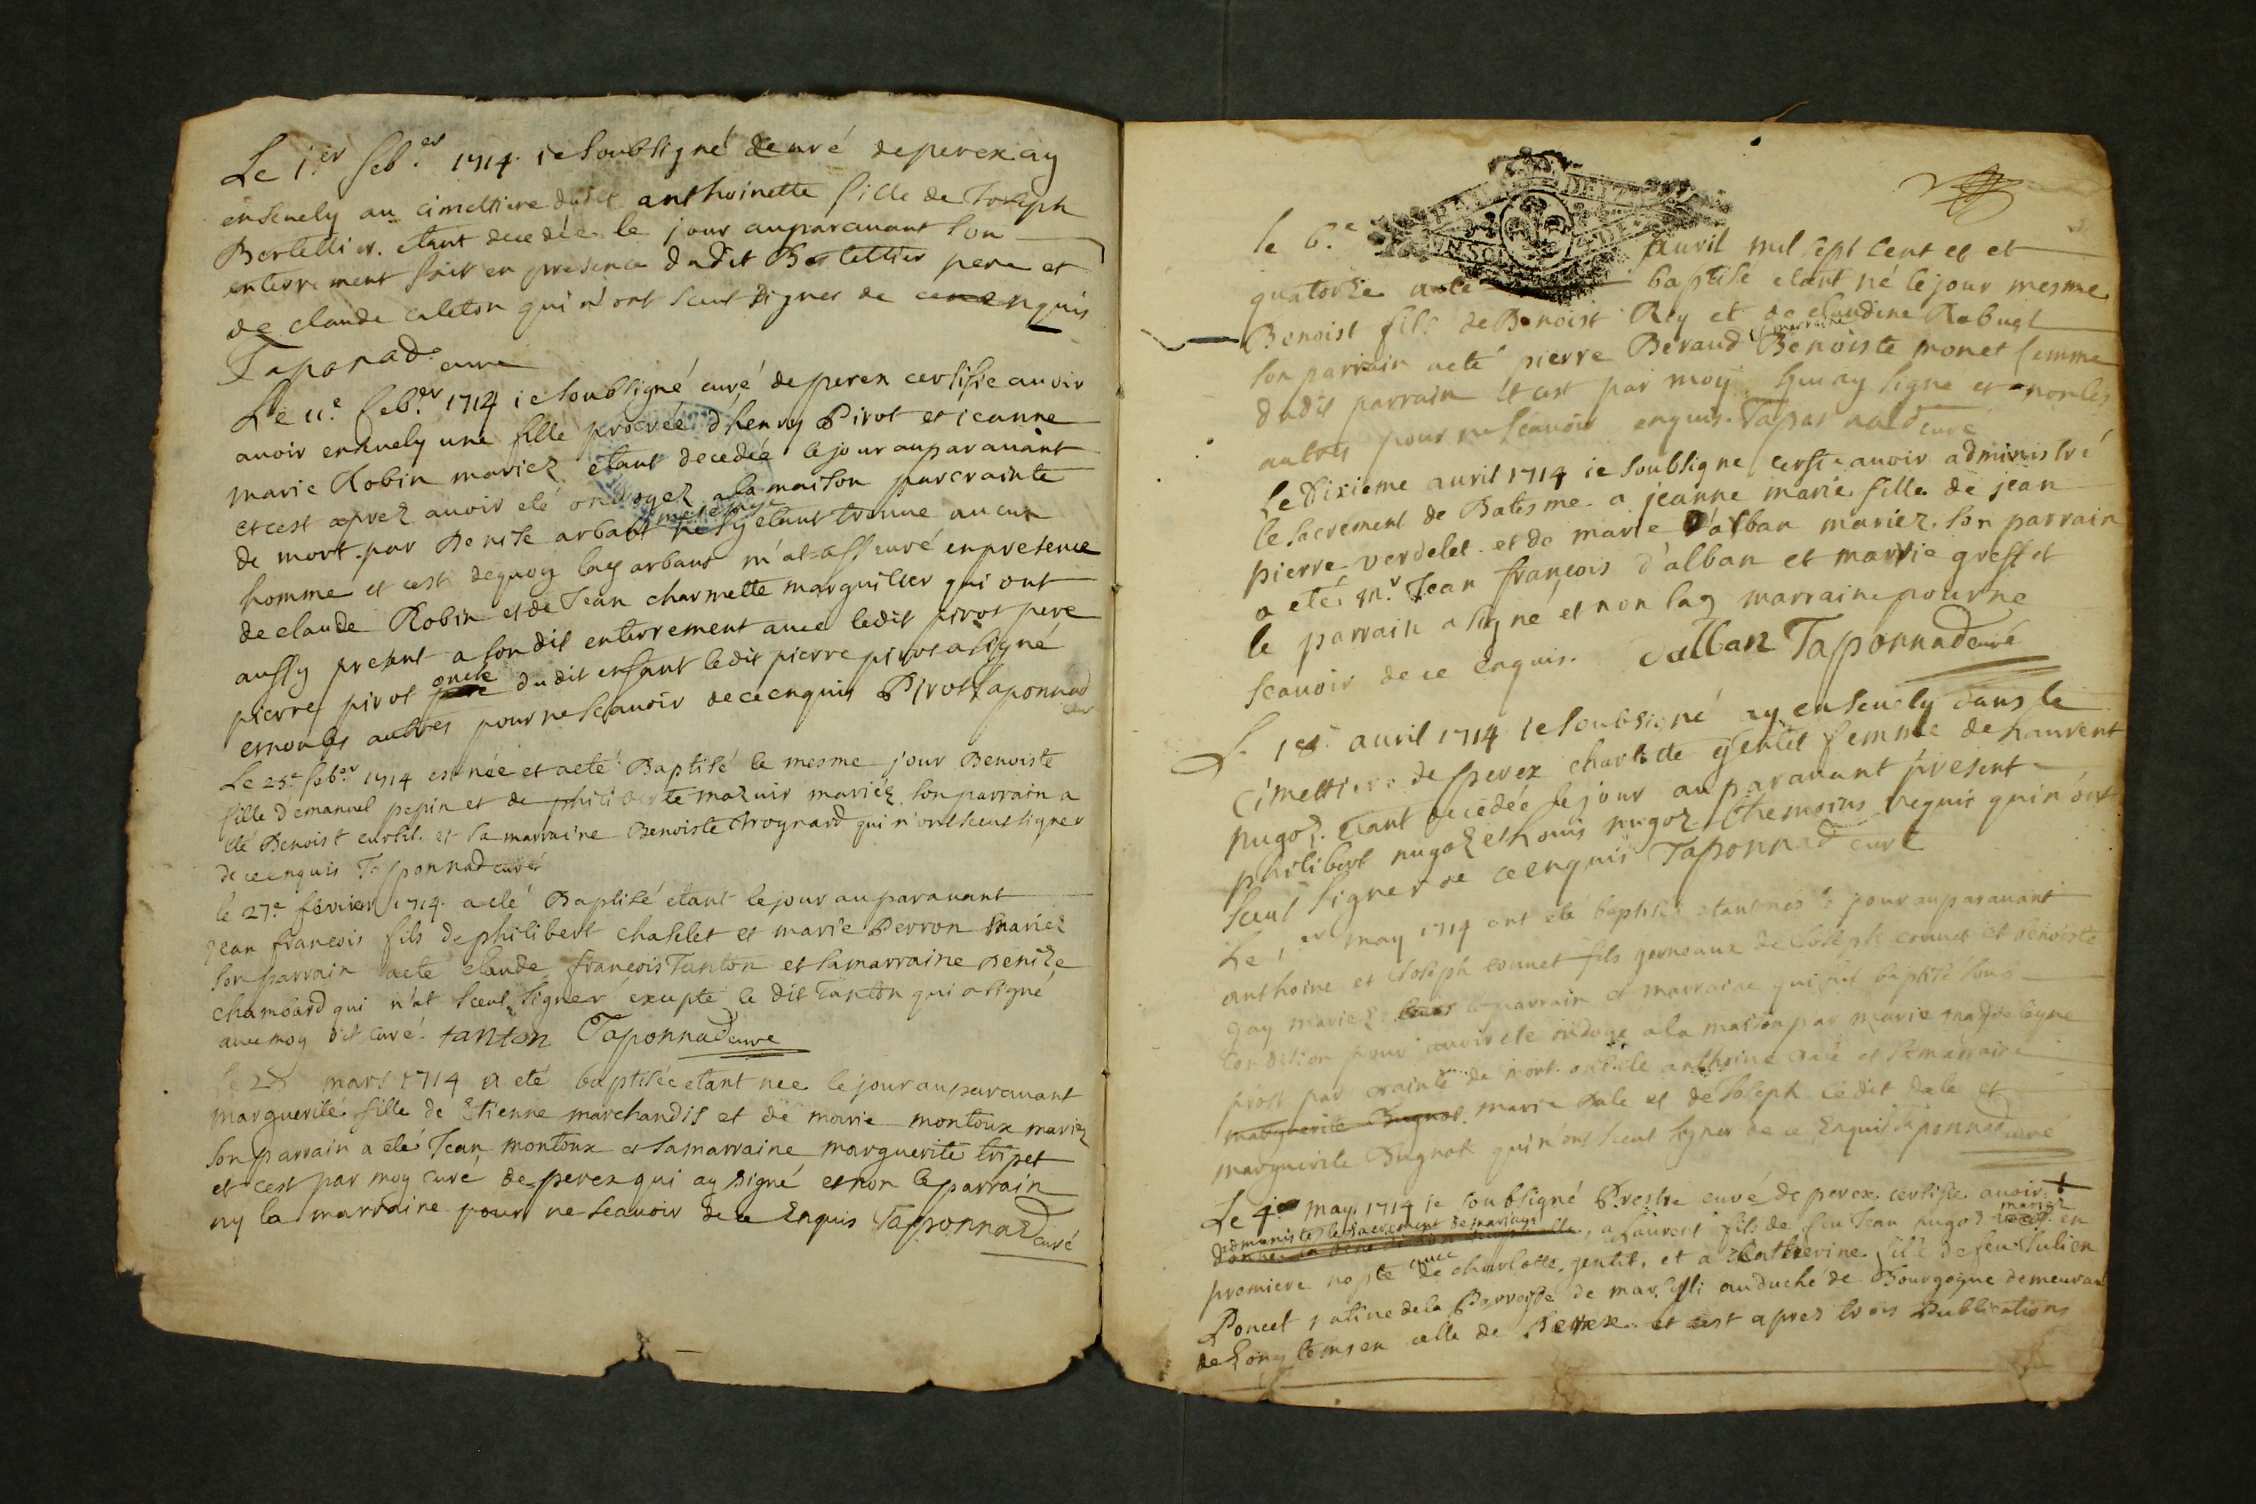 Le 1.er feb.er 1714. ie soubsigné curé de perex ay
ensevely au cimettiere dudit anthoinette fille de Joseph
Bertellier. etant decedée le jour auparavant son
enterrement fait en presence dudit Bertellier pere et
de claude caleton qui n'ont sceut signer de ce enquis
Taponad curé
Le 11.e feb.er 1714 ie soubsigné curé de perex certifie avoir
avoir ensevely une fille procreée d'henry Pirot et ieanne
marie Robin mariez etant decedée le jour auparavant
et cest aprez avoir eté ondoyez a la maison par crainte
de mort. par Denise arbant ne sy etant trouvé aucun
homme et cest dequoy lad arbant m'at asseuré en presence
de claude Robin et de Jean charmette marguillier qui ont
aussy present a son dit enterrement avec ledit pirot pere
pierre pirot oncle dudit enfant ledit pierre pirot a signé
et non les autres pour ne scavoir de ce enquis Pirot Taponnad
Le 25.e feb.er 1714 est née et a eté Baptisé le mesme jour Benoiste
fille d'emanuel pepin et de philiberte mazuir mariéz son parrain a
eté Benoist curtil. et sa marraine Benoiste Troynard qui n'ont sceut signer
de ce enquis Taponnad curé
le 27.e février 1714. a eté Baptisé etant le jour auparavant
Jean francois fils de philibert chaselet et marie Perron mariéz
son parrain a eté claude francois Tanton et sa marraine Denize
chambard qui n'at sceut signer excepte le dit Tanton qui a signé
avec moy dit curé. tanton Taponnad curé
le mars 1714 a eté baptisée etant nee le jour auparavant
marguerite fille de Etienne marchandis et de marie montoux mariez
son parrain a eté Jean montoux et sa marraine marguerite tripet
et cest par moy curé de perex qui ay signé et non le parrain
ny la marraine pour ne scavoir de ce Enquis Taponnad curé
le 6.e avril mil sept cent et et
quatorze a eté baptisé etant né le jour mesme
Benoist fils de Benoist Rey et de claudine Rabuel
son parrain a eté pierre Beraud marraine Benoiste monet femme
dudit parrain Et cest par moy qui ay signe et non les
autres pour ne scavoir enquis. Taponnad curé
Le dixieme avril 1714 ie soubsigne certifie avoir administré
le sacrement de Batesme a jeanne marie fille de jean
pierre verdelet et de marie D'alban mariez. son parrain
a eté mr. Jean françois d'alban et marie greffet
le parrain a signé et non lad marraine pour ne
scavoir de ce enquis. dalban Taponnad curé
L avril 1714 ie soubsigné ay ensevely dans le
Cimettiere de perex charlote gentit femme de Laurent
pugoz. etant decedée le jour auparavant present
philibert pugoz et Louis pugoz themoins requis qui n'ont
sceut signer de ce enquis Taponnad curé
Le 1.er may 1714 ont eté baptisés etant nés le jour auparavant
anthoine et Joseph connet fils gemeaux de Joseph connet et benoiste
gay mariez le parrain et marraine qui fut baptisé sous
condition pour avoir eté ondoyé a la maison par marie magdeleyne
prost par crainte de mort ont eté anthoine et sa marraine
marguerite Bugnot. marie dale et de Joseph le dit dale et
marguerite Bugnot qui n'ont sceut signer de ce Enquis Taponnad curé
Le 4.e may 1714 ie soubsigné Prestre curé de perex certifie avoir
administré le sacrement de mariage a Laurent fils de feu Jean pugoz mariez en
premiere nopce avec de charlotte gentit, et a Catherine fille de feu Julien
Poncet native de la Parroisse de au duché de Bourgogne demeurant
de Long tems en celle de Perex. et cest apres trois Publications